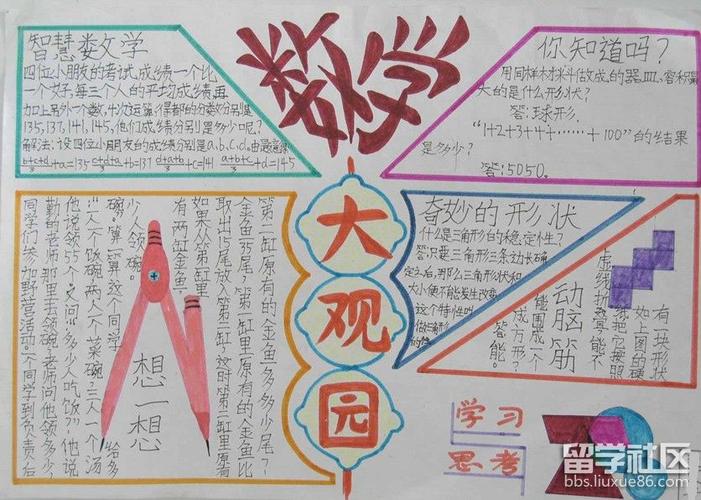 智慧数学
四位小朋友的考试成绩一个比
一个好,每三个人的平均成绩再
加上另外一个数,十次运算,得都的分数分别是
135,137,141,145,他们成绩分别是多少呢?
解法:设四位小朋友的成绩分别是a、b、c、d。由题意
数学
大观园
你知道吗?
用同样材料做成的器皿,容积最
大的是什么形状?
答:球形.
“1+2+3+4+……+100”的结果
是多少?
答:5050。
第二缸原有的金鱼多多少尾?
金鱼35尾,第一缸里原有的金鱼比
取出15尾放入第二缸,这时第二缸里原有
如果从第一缸里
有两缸金鱼,
想一想
少人领碗。
碗”。算算这个同学给多
“一人一个饭碗,两人一个菜碗,三人一个汤
他说领55个。又问“多少人吃饭”他说
勤的老师那里去领碗,老师问他领多少,
同学们参加野营活动。一个同学到负责后
奇妙的形状
什么是三角形的稳定性?
答:只要三角形三条边长确
定之后,那么三角形状和
大小便不能发生改变
这个特性叫
做三角形
动脑筋
有一块形状
如上图的硬
纸把它按照
虚线折叠,能不
能围成一个
正方形?
答:能
学习
思考
留学社区
bbs.liuxue86.com